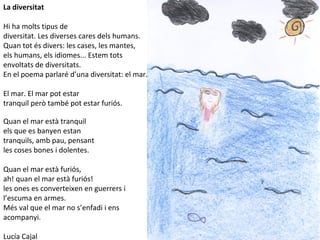 La diversitat
Hi ha molts tipus de
diversitat. Les diverses cares dels humans.
Quan tot és divers: les cases, les mantes,
els humans, els idiomes... Estem tots
envoltats de diversitats.
En el poema parlaré d'una diversitat: el mar.
El mar. El mar pot estar
tranquil però també pot estar furiós.
Quan el mar està tranquil
els que es banyen estan
tranquils, amb pau, pensant
les coses bones i dolentes.
Quan el mar està furiós,
ah! quan el mar està furiós!
les ones es converteixen en guerrers i
l'escuma en armes.
Més val que el mar no s'enfadi i ens
acompanyi.
Lucía Cajal